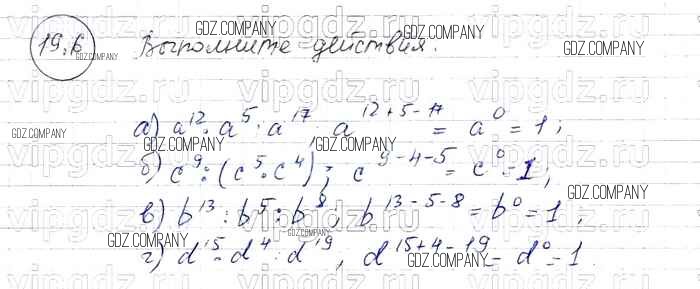 19.6 Выполните действия.
а) a¹² · a⁵ : a¹⁷ ; a¹²⁺⁵⁻¹⁷ = a⁰ = 1 ;
б) c⁹ : (c⁵ · c⁴) ; c⁹⁻⁴⁻⁵ = c⁰ = 1 ;
в) b¹³ : b⁵ : b⁸ , b¹³⁻⁵⁻⁸ = b⁰ = 1 ;
г) d¹⁵ · d⁴ : d¹⁹ , d¹⁵⁺⁴⁻¹⁹ = d⁰ = 1 .
GDZ.COMPANY
vipgdz.ru